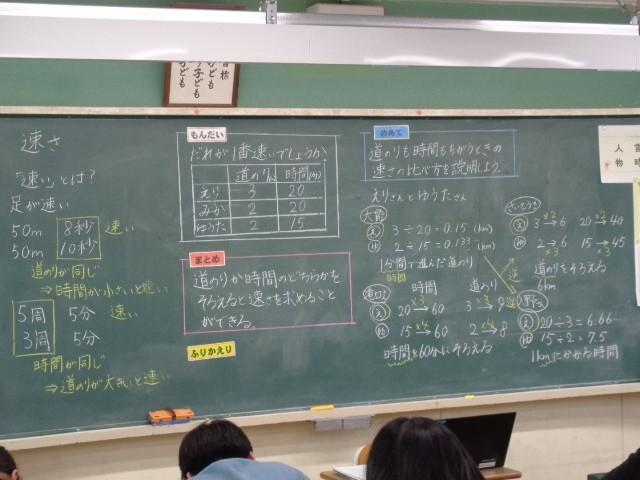 速さ
「速い」とは?
足が速い
50m 8秒 速い
50m 10秒
道のりが同じ
⇒時間が小さいと速い
5周 5分 速い
3周 5分
時間が同じ
⇒道のりが大きいと速い
もんだい
だれが1番速いでしょうか。
道のり(km) 時間(分)
えり 3 20
みか 2 20
ゆうた 2 15
まとめ
道のりか時間のどちらかを
そろえると速さを求めること
ができる。
ふりかえり
めあて
道のりも時間もちがうときの
速さの比べ方を説明しよう。
えりさんとゆうたさん
え 3÷20=0.15 (km)
ゆ 2÷15=0.133 (km)
1分間で進んだ道のり
時間
時間 道のり
え 20 ×3→ 60 3 ×3→ 9
ゆ 15 ×4→ 60 2 ×4→ 8
時間を60分にそろえる
え 3 ×2→ 6 20 ×2→ 40
ゆ 2 ×3→ 6 15 ×3→ 45
道のりをそろえる
6km
え 20÷3=6.66
ゆ 15÷2=7.5
1kmにかかる時間